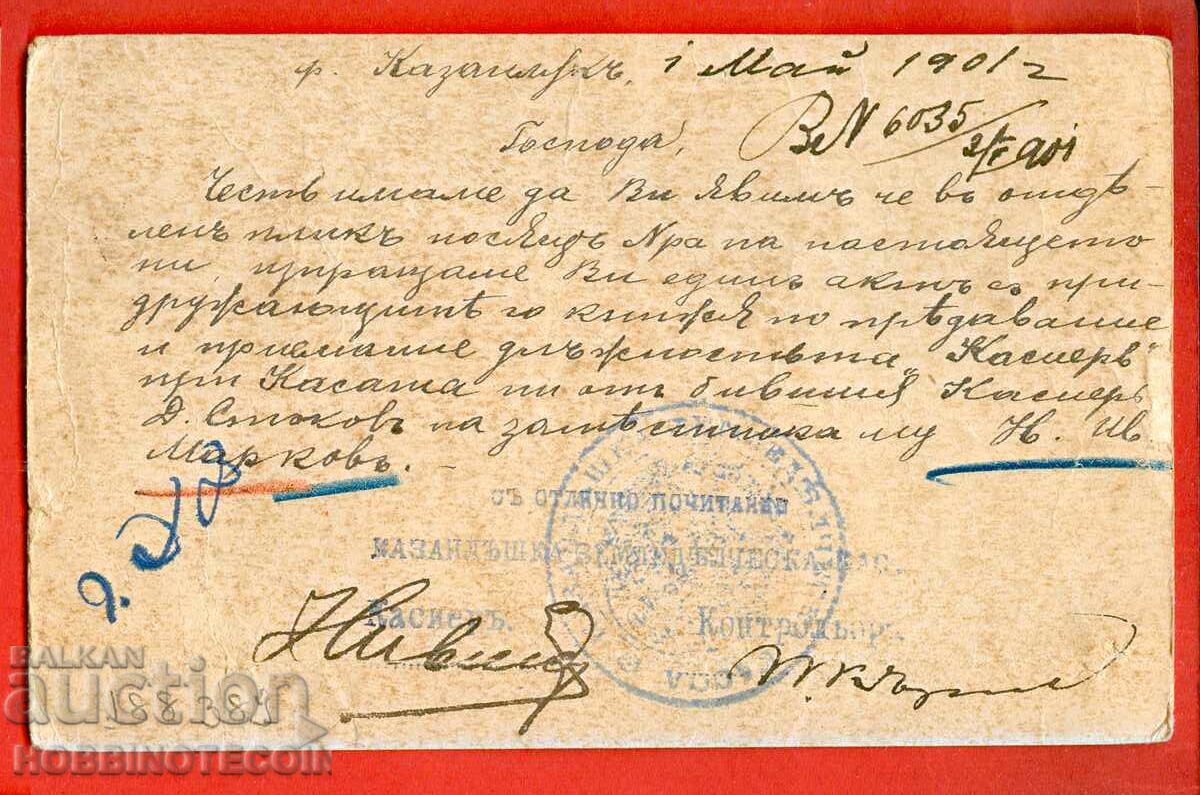 гр. Казанлъкъ, 1 Май 1901 г
Вх N 6035
2/V 901
Господа,
Честь имаме да Ви явимъ че въ отдѣ-
ленъ пликъ последъ Nра на настоящето
ни, изпращаме Ви единъ актъ съ при-
дружающитѣ го книжя по прѣдавание
и приемание длъжностьта „Касиеръ"
при Касата ни отъ бившия Касиеръ
Д. Стоковъ на замѣстника му Н. Ив
Марковъ. —
съ отлично почитание
КАЗАНЛЪШКА ЗЕМЛЕДѢЛЧЕСКА КАС.
Касиеръ. Контрольоръ
КАССА
1881-84
BALKAN
auction
HOBBINOTECOIN